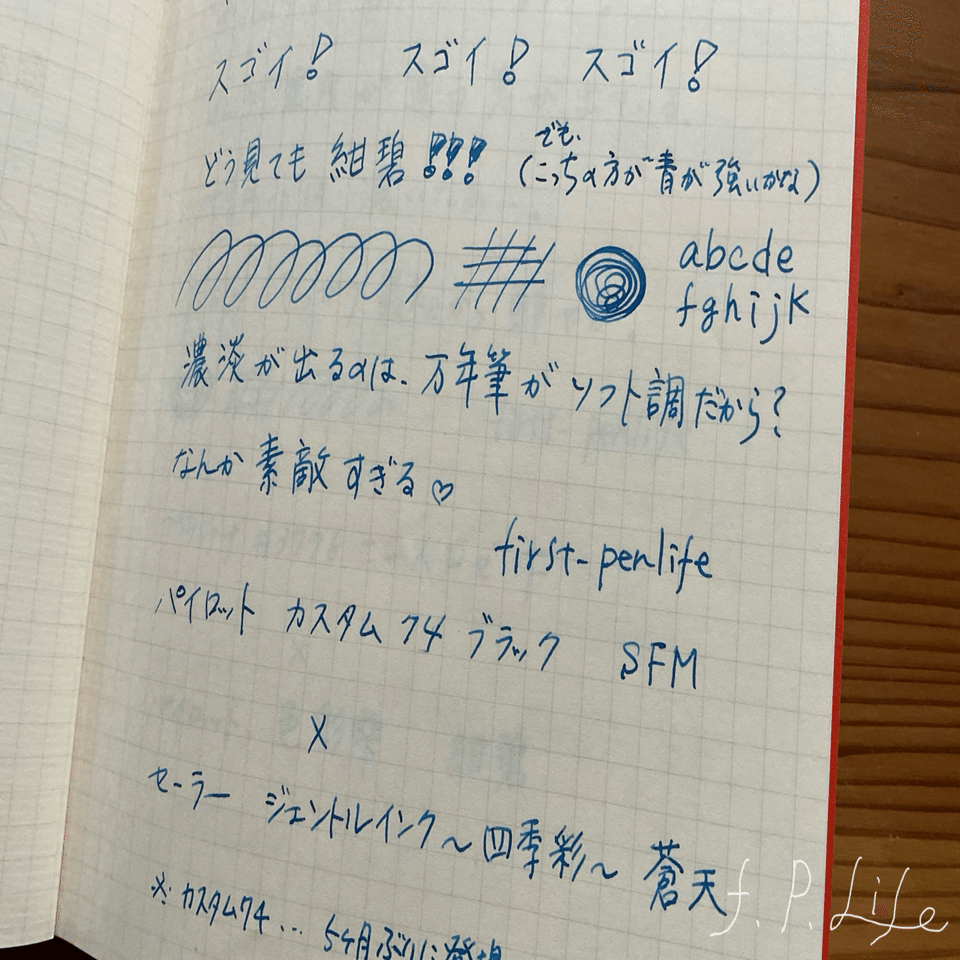 スゴイ! スゴイ! スゴイ!
どう見ても 紺碧!!! (でも、こっちの方が青が強いかな)
abcde
fghijk
濃淡が出るのは、万年筆がソフト調だから?
なんか素敵すぎる♡
first-penlife
パイロット カスタム74 ブラック SFM
×
セーラー ジェントルインク~四季彩~ 蒼天
※カスタム74… 5ヶ月ぶりに
f.P.Life